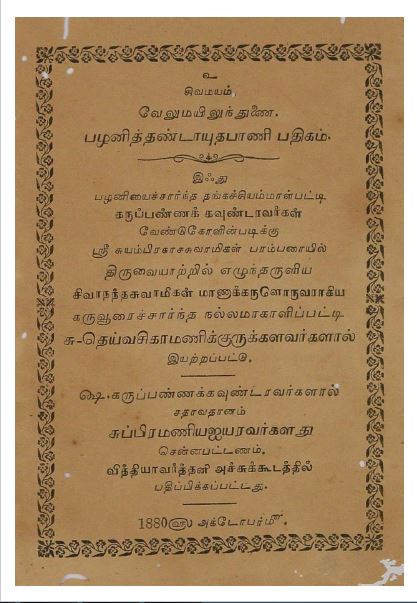 உ
சிவமயம்,
வேலுமயிலுந்துணை.
பழனித்தண்டாயுதபாணி பதிகம்.
இஃது
பழனியைச்சார்ந்த தங்கச்சியம்மாள்பட்டி
கருப்பண்ணக் கவுண்டரவர்கள்
வேண்டுகோளின்படிக்கு
ஸ்ரீ சுயம்பிரகாசசுவாமிகள் பரம்பரையில்
திருவையாற்றில் எழுந்தருளிய
சிவாநந்தசுவாமிகள் மாணாக்கருளொருவராகிய
கருவூரைச்சார்ந்த நல்லமரகாளிப்பட்டி
சு-தெய்வசிகாமணிக்குருக்களவர்களால்
இயற்றப்பட்டு.
ஷெ. கருப்பண்ணக்கவுண்டரவர்களால்
சதாவதானம்
சுப்பிரமணியஐயரவர்களது
சென்னபட்டணம்.
வித்தியாவர்த்தனி அச்சுக்கூடத்தில்
பதிப்பிக்கப்பட்டது.
1880௵ அக்டோபர்௴.